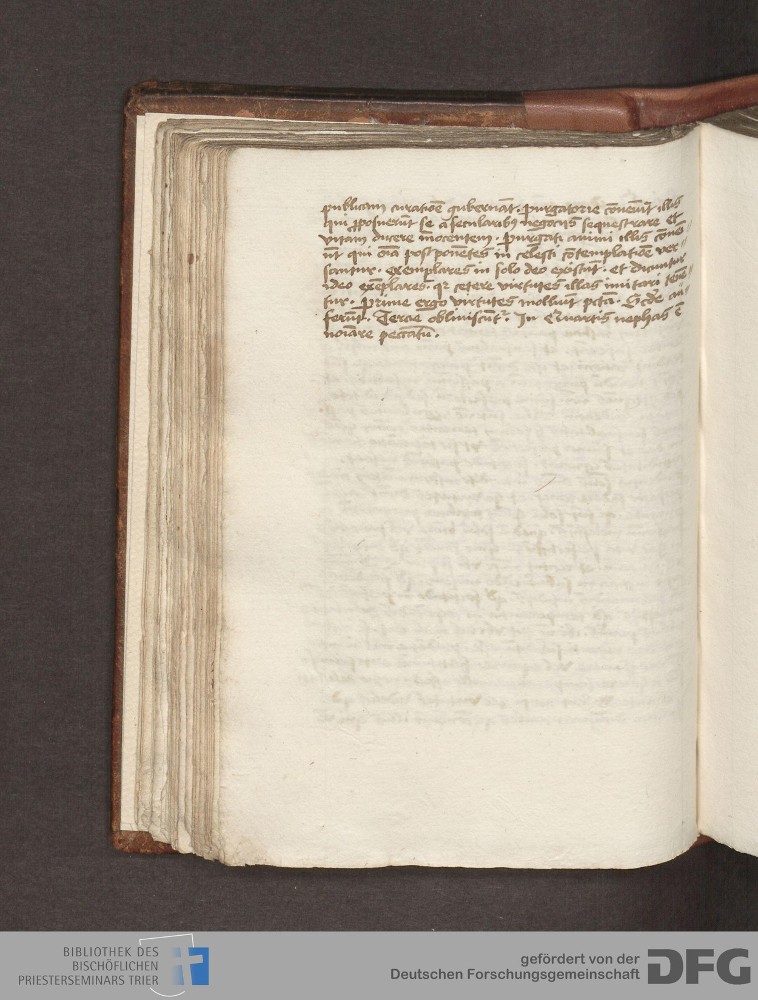 publicam curatiōe gubernāt. purgatorie cōueniūt illis
qui ꝓposuerūt se a secularibꝫ negociis sequestrare et
vitam ducere inocentem. Purgati animi illis cōue-
nit qui oīa postponētes in celesti cōtemplatiōe ver-
santur. exemplares in solo deo existūt. et dicuntur
ideo exēplares. qꝛ cetere virtutes illas imitari tenē-
tur. Prime ergo virtutes molliūt pctā. Scde au-
ferūt. Tercie obliuiscūtᷣ. In Quartis nephas ē
noīare peccatū.
BIBLIOTHEK DES
BISCHÖFLICHEN
PRIESTERSEMINARS TRIER
gefördert von der
Deutschen Forschungsgemeinschaft
DFG